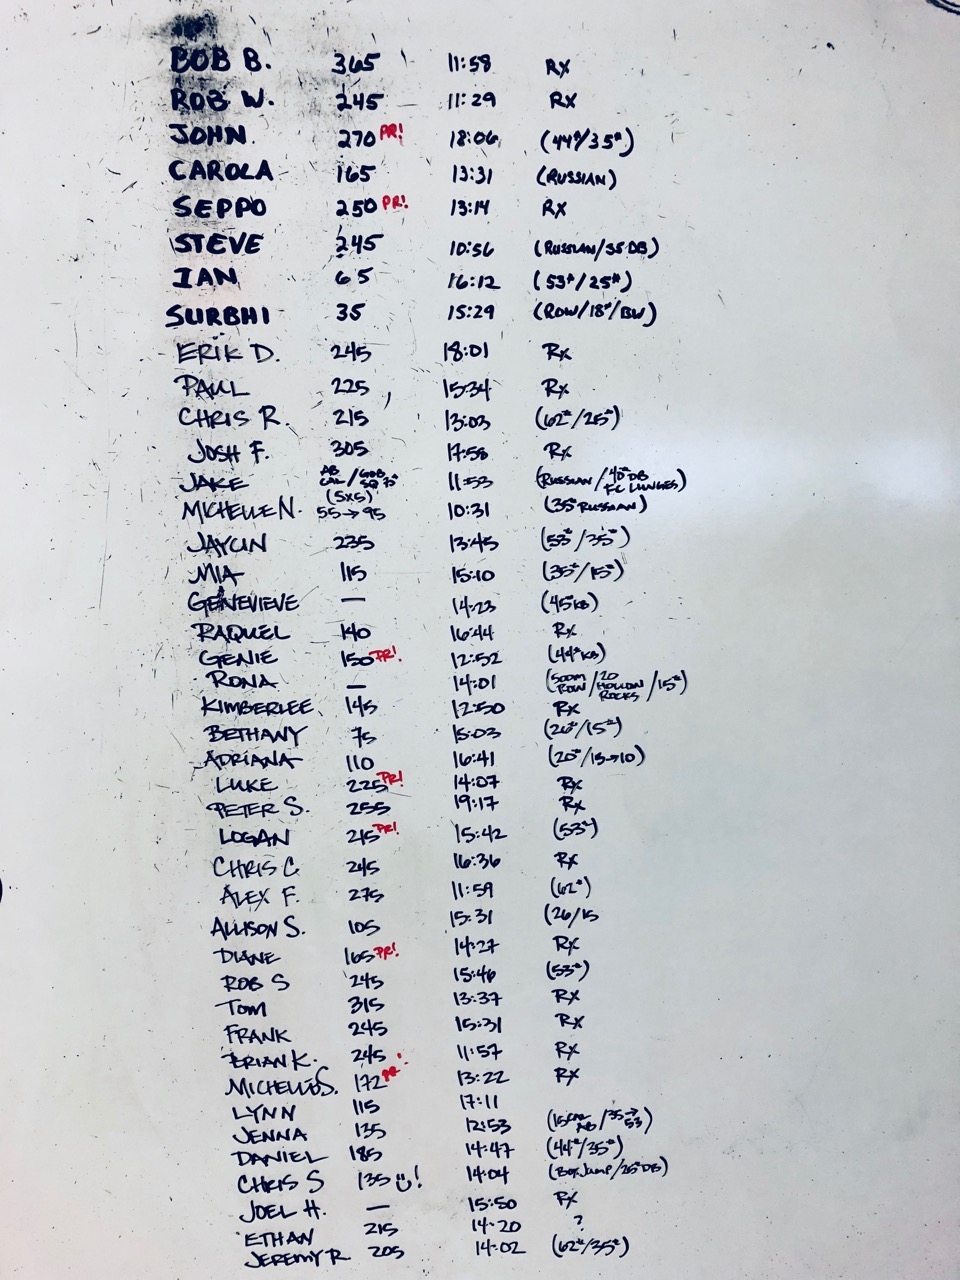 BOB B. 365 11:58 RX
ROB W. 245 11:29 RX
JOHN 270 PR! 18:06 (44#/35#)
CAROLA 165 13:31 (RUSSIAN)
SEPPO 250 PR! 13:14 RX
STEVE 245 10:56 (RUSSIAN/35 DB)
IAN 65 16:12 (53#/25#)
SURBHI 35 15:29 (ROW/18#/BW)
ERIK D. 245 18:01 RX
PAUL 225 15:34 RX
CHRIS R. 215 13:03 (62#/25#)
JOSH F. 305 17:58 RX
JAKE AB CAL/GOB SQ 75# 11:53 (RUSSIAN/40# DB FC LUNGES)
MICHELLE N. (5X5) 55→95 10:31 (35# RUSSIAN)
JAYLIN 235 13:45 (53#/35#)
MIA 115 15:10 (35#/15#)
GENEVIEVE — 14:23 (45# KB)
RAQUEL 140 16:44 RX
GENIE 150 PR! 12:52 (44# KB)
RONA — 14:01 (500M ROW/20 HOLLOW ROCKS/15#)
KIMBERLEE 145 12:50 RX
BETHANY 75 15:03 (26#/15#)
ADRIANA 110 16:41 (20#/15→10)
LUKE 225 PR! 14:07 RX
PETER S. 255 19:17 RX
LOGAN 215 PR! 15:42 (53#)
CHRIS C 245 16:36 RX
ALEX F. 275 11:59 (62#)
ALLISON S. 105 15:31 (26/15
DIANE 165 PR! 14:27 RX
ROB S 245 15:46 (53#)
TOM 315 13:37 RX
FRANK 245 15:31 RX
BRIAN K. 245 11:57 RX
MICHELLE S. 172 PR 13:22 RX
LYNN 115 17:11
JENNA 135 12:53 (15 CAL AB/35→53)
DANIEL 185 14:47 (44#/35#)
CHRIS S 135 ! 14:04 (BOX JUMP/25# DB)
JOEL H. — 15:50 RX
ETHAN 215 14:20 ?
JEREMY R 205 14:02 (62#/35#)